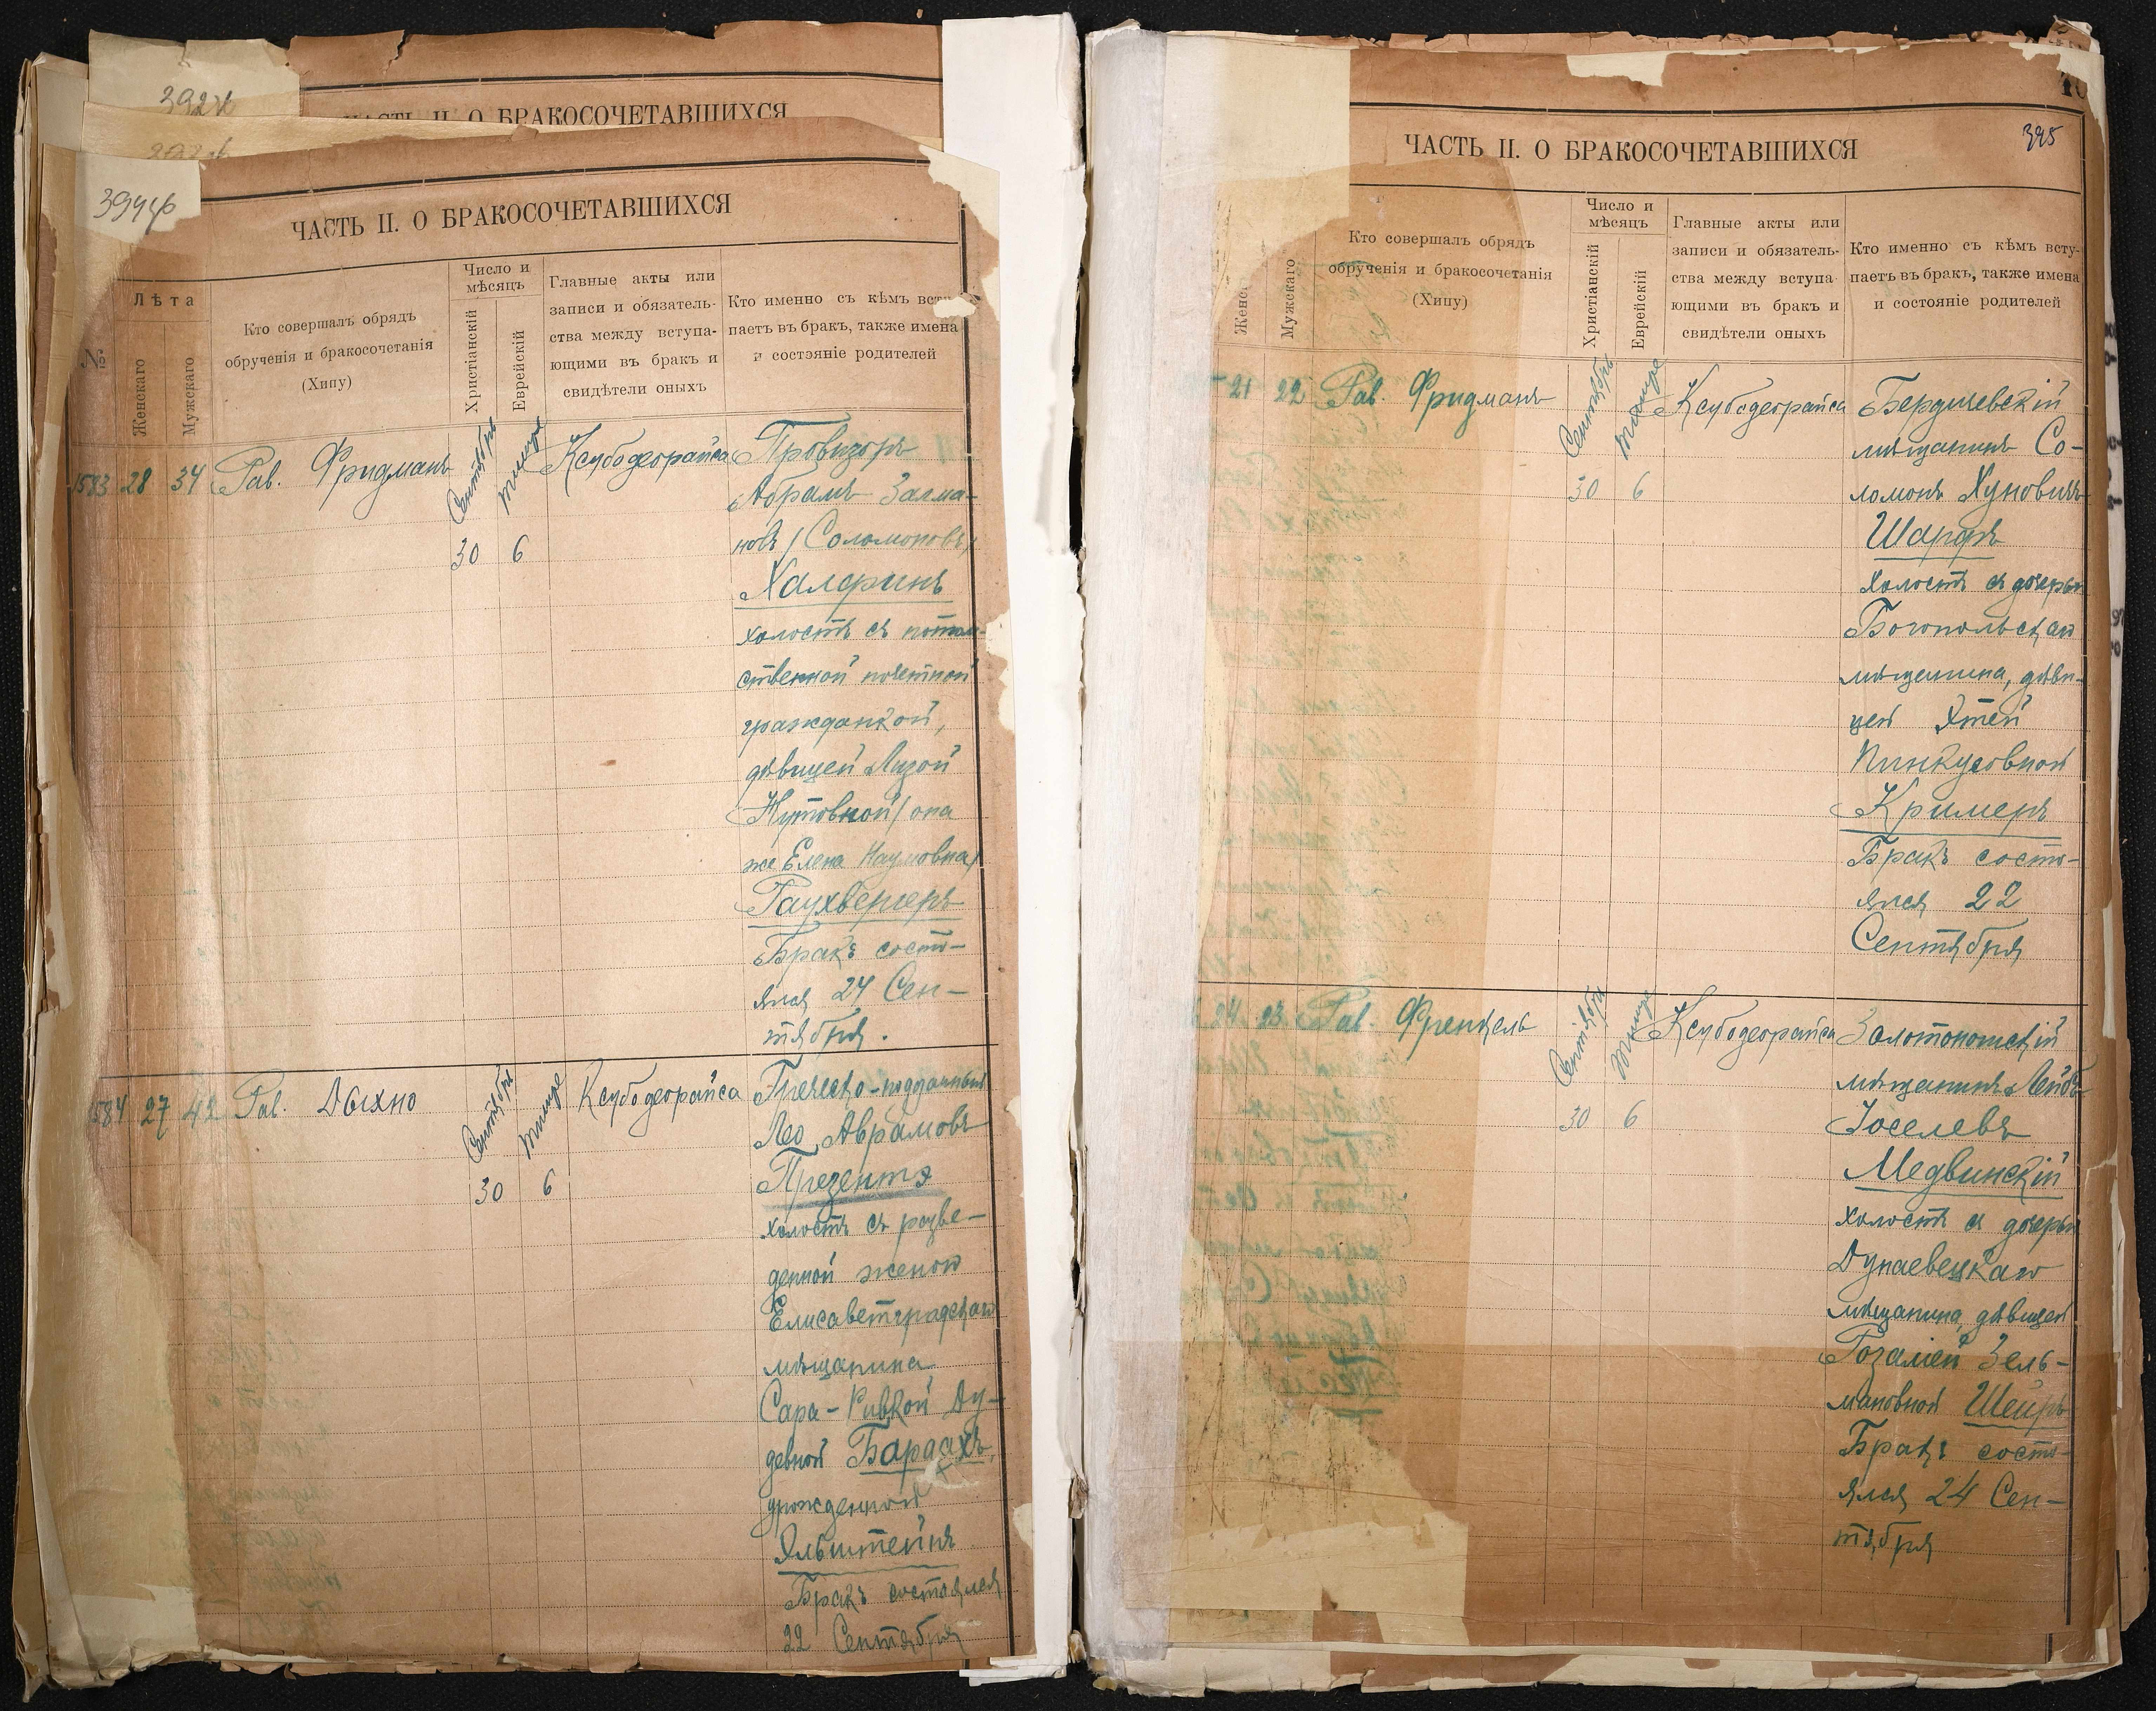 392
ЧАСТЬ II. О БРАКОСОЧЕТАВШИХСЯ
394
ЧАСТЬ II. О БРАКОСОЧЕТАВШИХСЯ
№
Лѣта
Женскаго
Мужскаго
Кто совершалъ обрядъ
обрученія и бракосочетанія
(Хипу)
Число и
мѣсяцъ
Христіанскій
Еврейскій
Главные акты или
записи и обязатель-
ства между вступа-
ющими въ бракъ и
свидѣтели оныхъ
Кто именно съ кѣмъ всту
паетъ въ бракъ, также имена
и состояніе родителей
1583 28 34 Рав. Фридманъ
Сентябрь
Тишре
30 6
Ксубодеорайса
Провизоръ
Абрамъ Залма-
новъ (Соломоновъ)
Халфинъ
холостъ съ потом-
ственной почетной
гражданкой,
дѣвицей Лизой
Нутовной (она
же Елена Наумовна)
Раухвергеръ
Бракъ состо-
ялся 24 Сен-
тября.
584 27 42 Рав. Дыхно
Сентября
Тишре
30 6
Ксубодеорайса
Греческо-подданный
Лео Аврамовъ
Презентэ
холостъ съ разве-
денной женою
Елисаветградскаго
мѣщанина
Сара-Ривкой Ду-
девной Бардахъ,
урожденной
Эльштейнъ
Бракъ состоялся
22 Сентября
395
ЧАСТЬ II. О БРАКОСОЧЕТАВШИХСЯ
Женс
Мужскаго
Кто совершалъ обрядъ
обрученія и бракосочетанія
(Хипу)
Число и
мѣсяцъ
Христіанскій
Еврейскій
Главные акты или
записи и обязатель-
ства между вступа
ющими въ бракъ и
свидѣтели оныхъ
Кто именно съ кѣмъ всту-
паетъ въ бракъ, также имена
и состояніе родителей
21 22 Рав. Фридманъ
Сентябрь
Тишре
30 6
Ксубодеорайса
Бердичевскій
мѣщанинъ Со-
ломонъ Хуновичъ
Шарфъ
холостъ съ дочерью
Богопольскаго
мѣщанина, дѣви-
цей Этей
Пинкусовной
Кримеръ
Бракъ состо-
ялся 22
Сентября
24 23 Рав. Френкель
Сентября
Тишре
30 6
Ксубодеорайса
Золотоношскій
мѣщанинъ Лейбъ
Іоселевъ
Медвинскій
холостъ съ дочерью
Дунаевецкаго
мѣщанина, дѣвицей
Розаліей Зель-
мановной Шейръ
Бракъ состо-
ялся 24 Сен-
тября